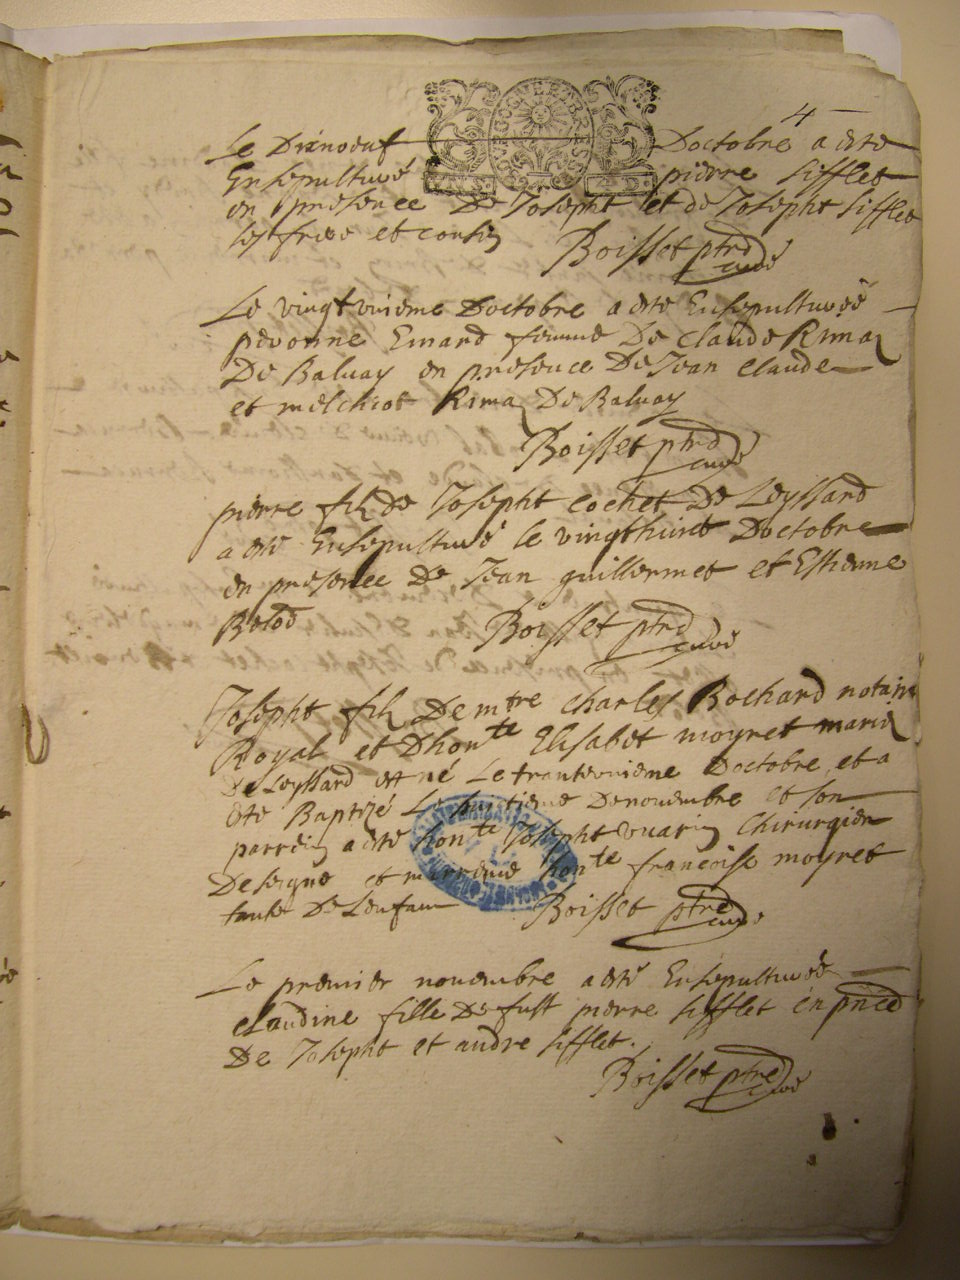 4
BOURGOGNE ET BRESSE
Le Dixnoeuf Doctobre a este
Ensepulturé pierre sifflet
en presence De Josepht et de Josepht sifflet
ses frere et cousin Boisset ptre
curé
Le vingtunieme Doctobre a esté Ensepulturéé
pevonne Emard femme De Claude Rima
De Balvay en presence De Jean Claude
et melchiot Rima De Balvay
Boisset ptre
curé
pierre fils de Josepht Cochet De Leyssard
a esté Ensepulturé le vingthuict Doctobre
en presence De Jean guillermet et Estienne
Boisset ptre
curé
Josepht fils De mtre Charles Bochard notaire
Royal et Dhonte Elisabet moyret mariés
De Leyssard est né Le trenteunieme Doctobre et a
esté Baptizé Le huitieme De novembre et son
parrein a esté honte Josepht vuarin Chirurgien
et marreine honte francoise moyret
tante De Lenfant Boisset ptre
curé
Le premier novembre a esté Ensepulturéé
Claudine fille De fust pierre sifflet en pnce
De Josepht et andre sifflet.
Boisset ptre
curé